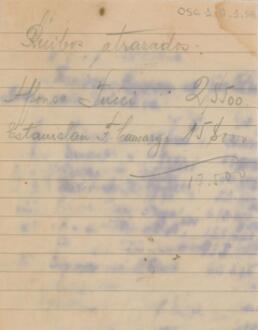 Recibos atrazados.
Affonso Tucci 2$500
Estanislau F Camargo 15$000
17.500